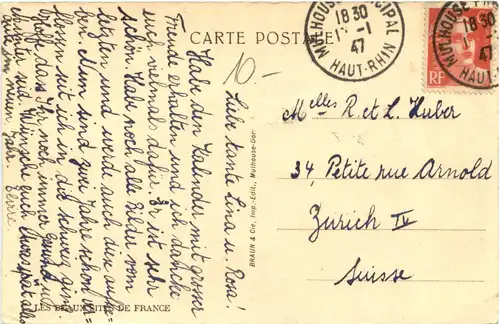 CARTE POSTALE
MULHOUSE PRINCIPAL
18 30
1 -1
47
HAUT-RHIN
MULHOUSE PRIN
18 30
47
HAUT-
RF
10-
Liebe Tante Lina u. Rosa!
Habe den Kalender mit grosser
Freude erhalten und ich danke
euch vielmals dafür. Er ist sehr
schön. Habe noch alle Bilder vom
letzten und werde auch den aufhe-
ben. Nun sind zwei Jahre schon ver-
flossen seit ich in die Schweiz ging.
Hoffe das Ihr noch immer gesund und
munter seid. Wünsche euch
gute im neuen Jahr.
Pierre.
LES BEAUX SITES DE FRANCE
BRAUN & Cie, Imp.-Edit., Mulhouse-Dor
Melles R. et L. Huber
34, Petite rue Arnold
Zurich IV
Suisse